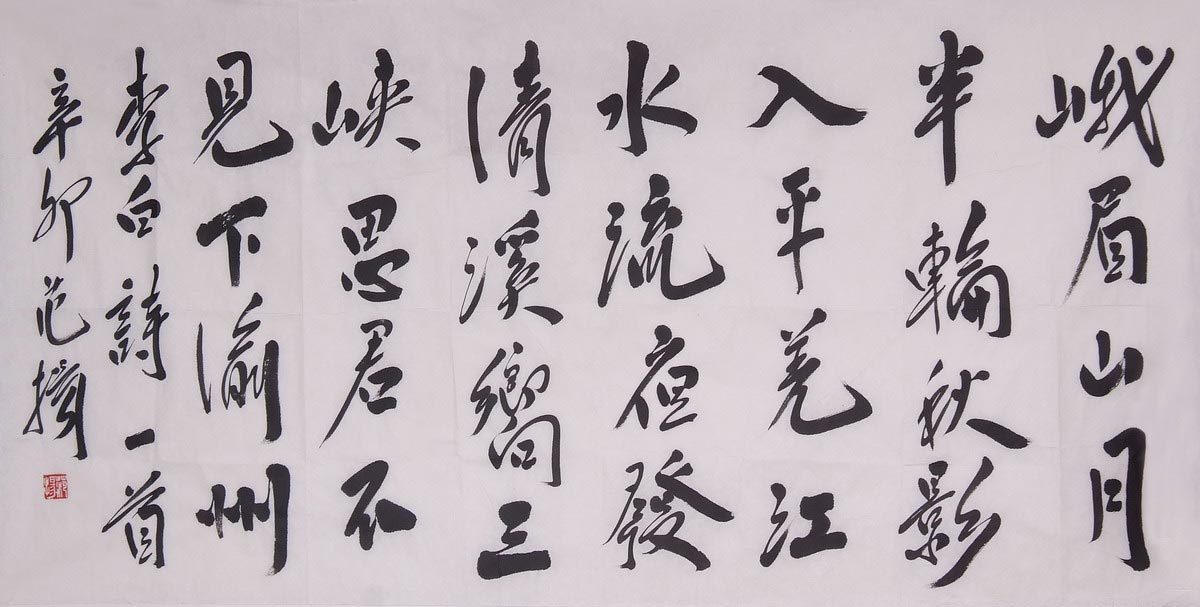 峨眉山月
半輪秋影
入平羌江
水流夜發
清溪嚮三
峽思君不
見下渝州
李白詩一首
辛卯范